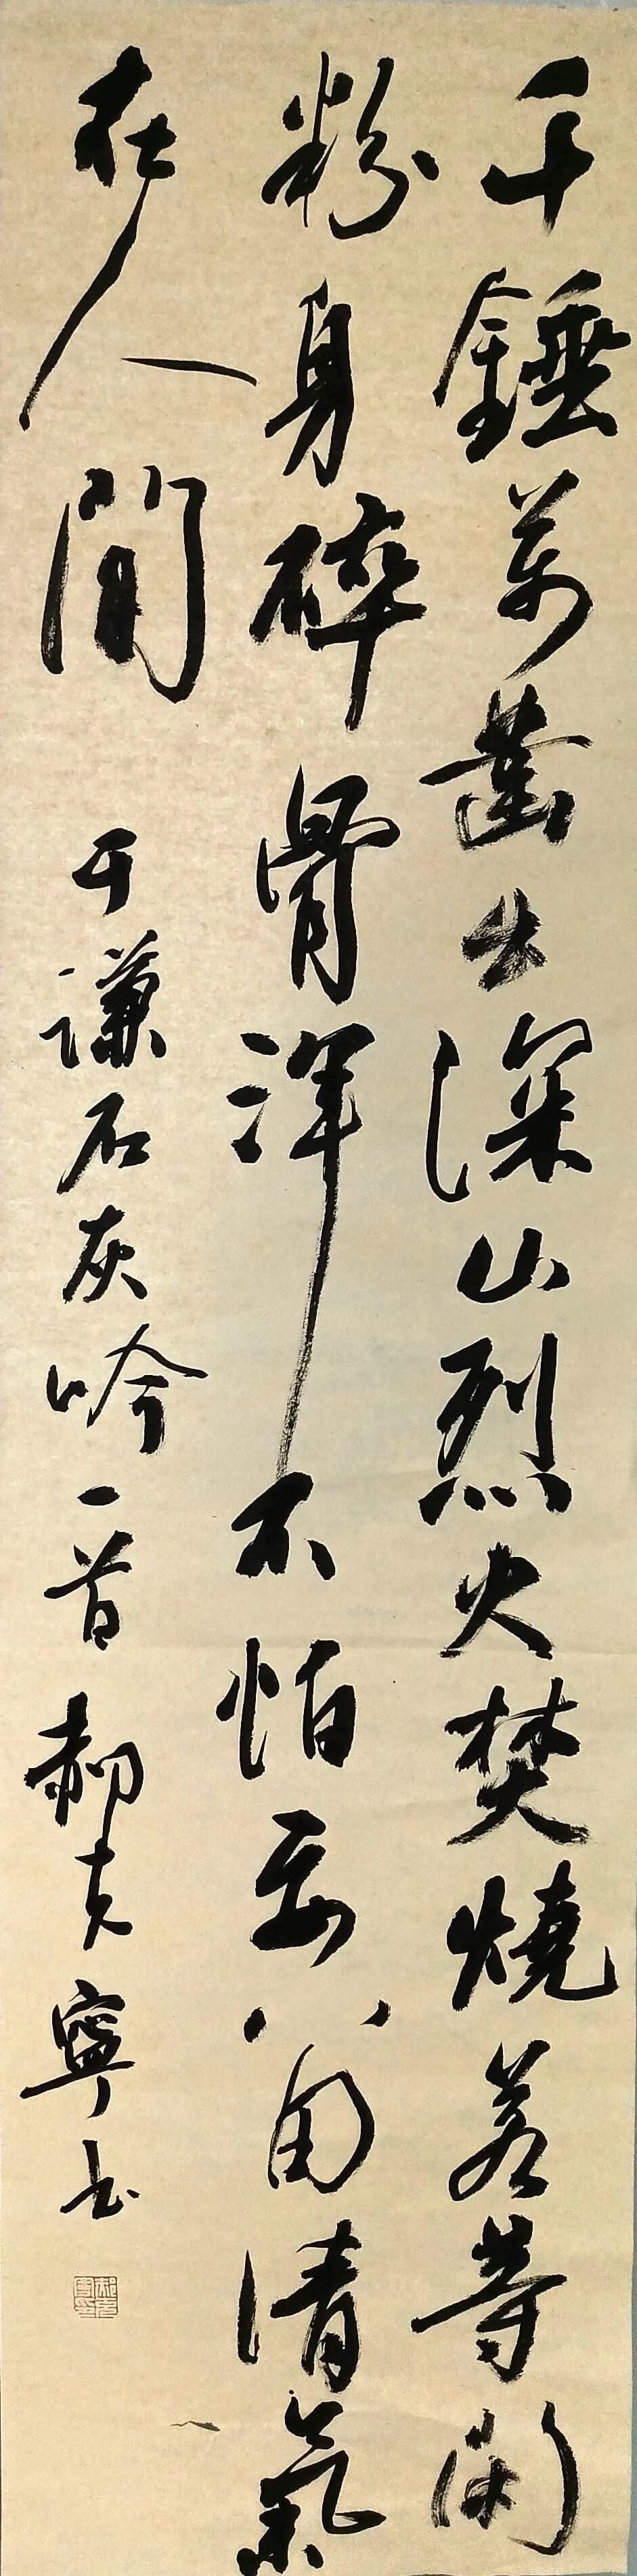 千錘萬凿出深山烈火焚燒若等閑
粉身碎骨渾不怕要留清氣
在人間 于謙石灰吟一首 郝克寧书